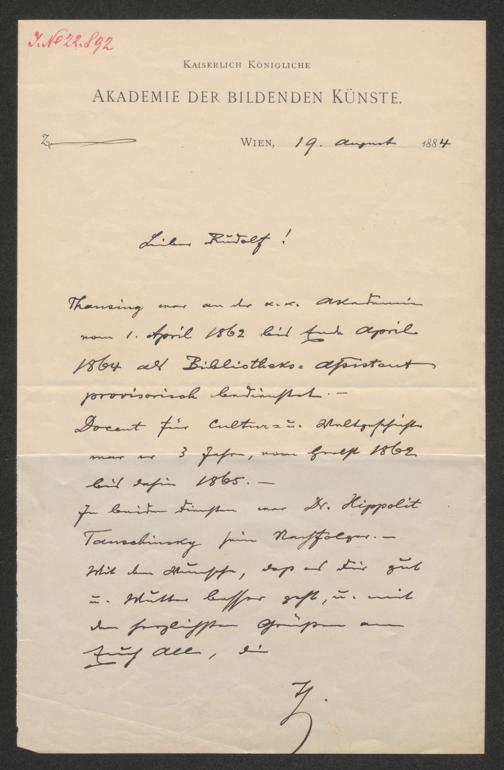 J. No 22.892
KAISERLICH KÖNIGLICHE
AKADEMIE DER BILDENDEN KÜNSTE.
Z
WIEN, 19. August 1884
Lieber Rudolf!
Thausing war an der k. k. Akademie
vom 1. April 1862 bis Ende April
1864 als Bibliotheks-Assistent
provisorisch bedienstet. —
Docent für Cultur- u. Weltgeschichte
war er 3 Jahre, vom Herbst 1862
bis dahin 1865. —
In beiden Diensten war Dr. Hippolit
Tauschinsky sein Nachfolger. —
Mit dem Wunsche, daß es Dir gut
u. Mutter besser geht, u. mit
den herzlichsten Grüßen an
Euch Alle,